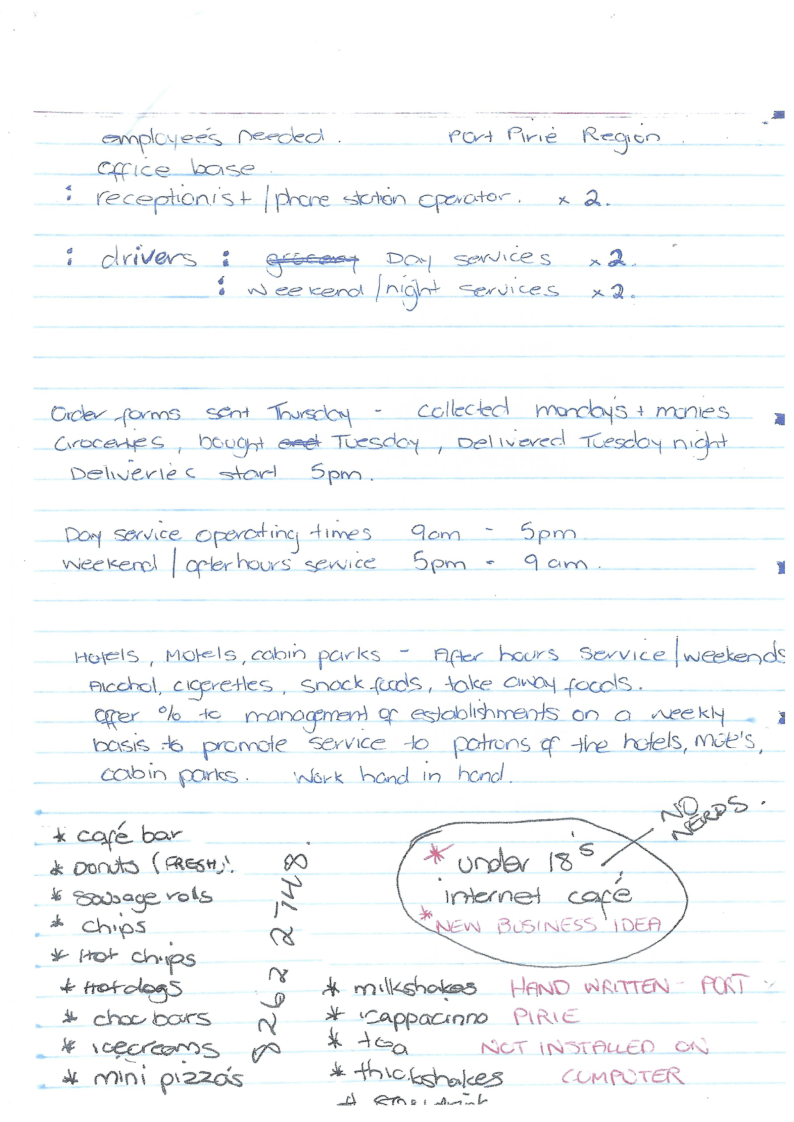 employee's needed. Port Pirie Region.
office base.
: receptionist / phone station operator. x 2.
: drivers : grocery Day services x 2.
: Weekend / night services x 2.
Order forms sent Thursday - collected monday's + monies
Groceries, bought and Tuesday, Delivered Tuesday night
Deliveries start 5pm.
Day service operating times 9am - 5pm
Weekend / after hours service 5pm - 9am.
Hotels, Motels, cabin parks - After hours service / weekends
Alcohol, cigerettes, snack foods, take away foods.
offer % to management of establishments on a weekly
basis to promote service to patrons of the hotels, mot's,
cabin parks. Work hand in hand.
* café bar
* Donuts (FRESH)!
* Sausage rols
* chips
* Hot chips
* Hotdogs
* choc bars
* icecreams
* mini pizza's
8262 2748.
NO NERDS.
* under 18's
internet café
* NEW BUSINESS IDEA
* milkshakes HAND WRITTEN - PORT
* cappacinno PIRIE
* tea NOT INSTALLED ON
* thickshakes COMPUTER